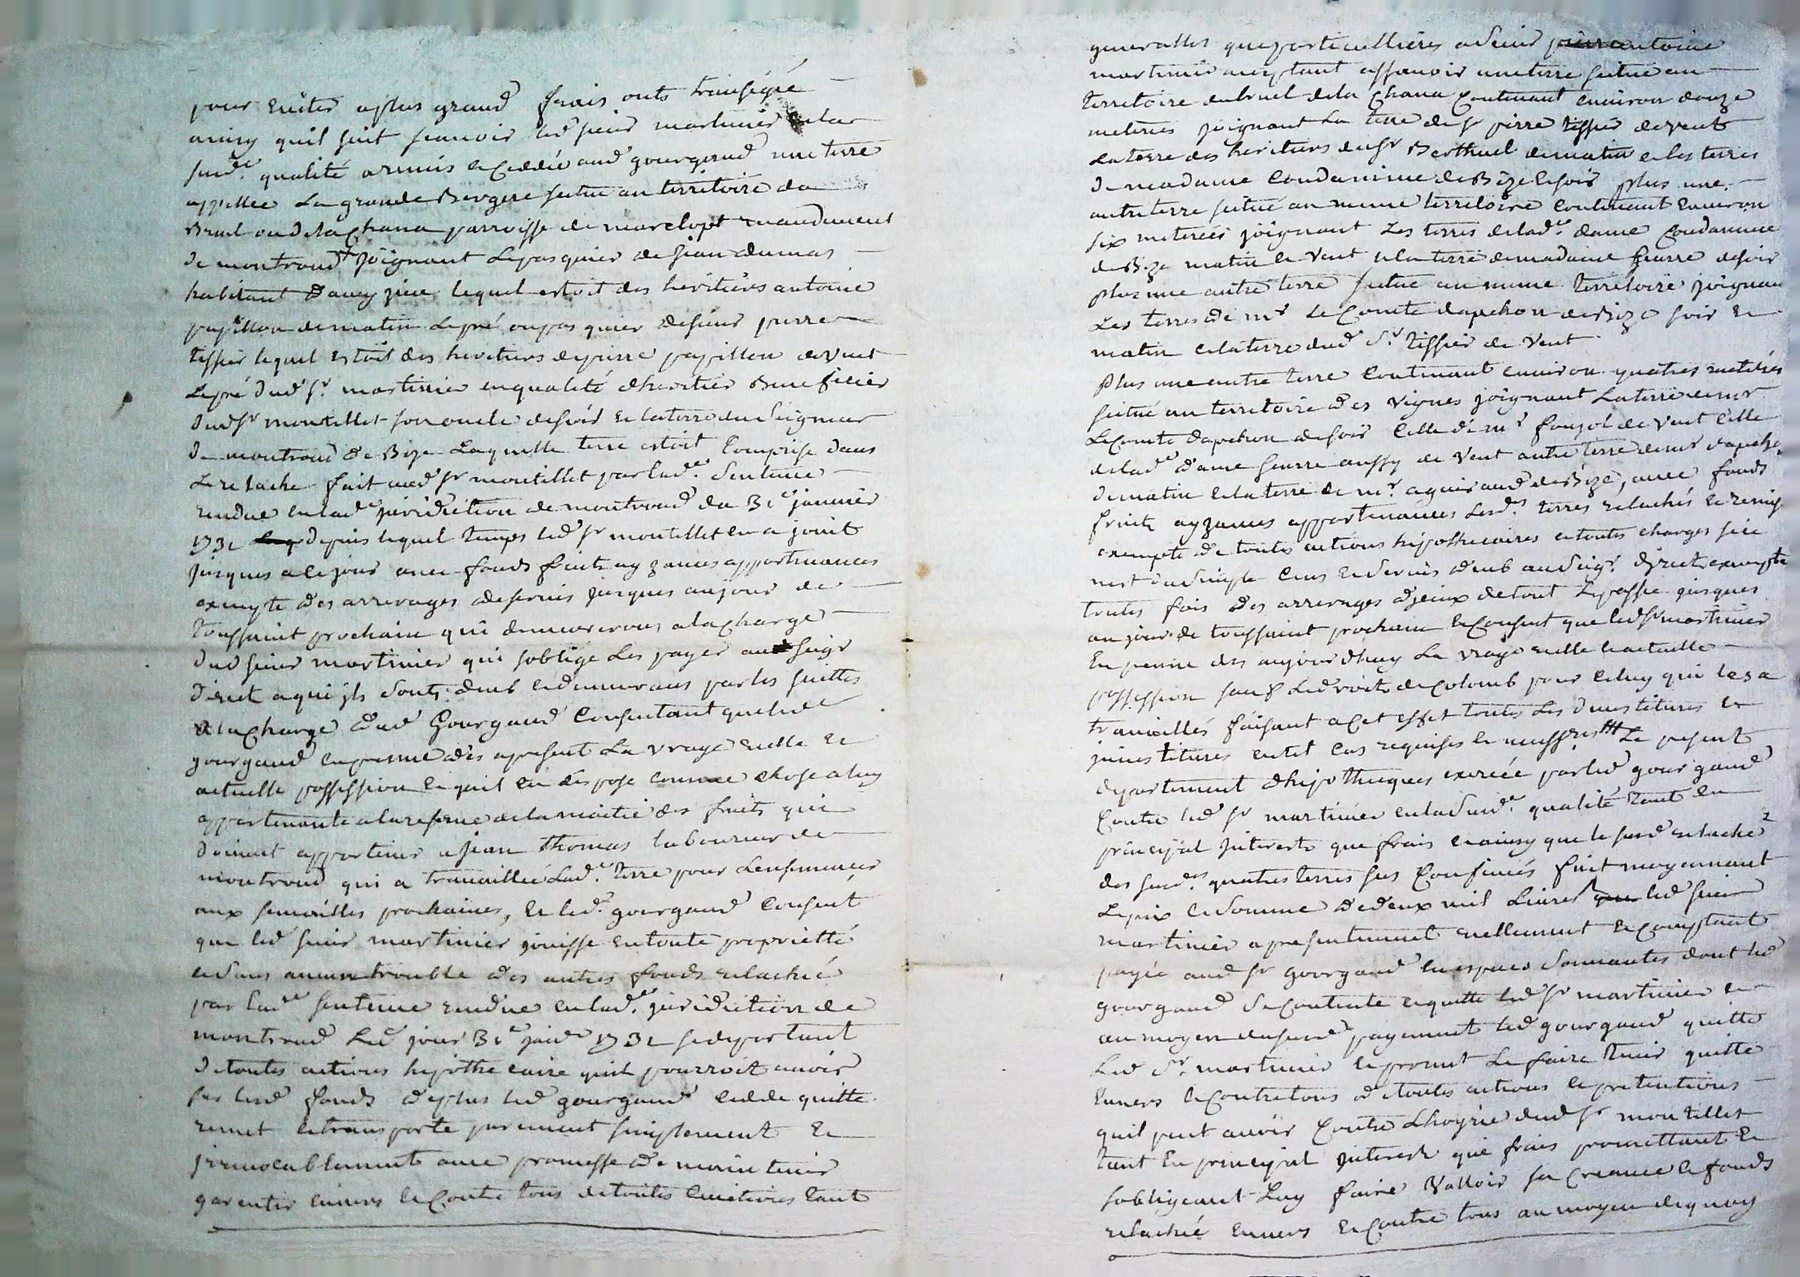 pour eviter a plus grand frais onts transigée
ainsy quil suit scavoir led sieur martinier en la
susde. qualité a remis et ceddé aud gourgaud une terre
appellée la grande Bergere scitue au territoire du
Bruel ou de la Chana parroisse de marclopt mandement
de montrond joignant le pasquier de jean dumas
habitant d'aveyzieu lequel estoit des heritiers antoine
papillon de matin le pré ou pasquier de sieur pierre
tissier lequel estoit des heritiers de pierre papillon de vent
le pré dud sr. martinier en qualité dheritier Beneficier
dud sr montellet son oncle de soir et la terre du seigneur
de montrond de Bize laquelle terre estoit comprise dans
le relache fait aud sr montellet par lade. sentence
rendue en lade juridiction de montrond du 31e janvier
1731 depuis lequel temps led sr montellet en a jouit
jusques a ce jour avec fonds fruits ayzances appartenances
exempte des arrerages de servis jusques au jour de
toussaint prochain qui demeureront a la charge
dud sieur martinier qui soblige les payer au seigr
direct a qui ils sont deub et demeurans par les suittes
a la charge dud Gourgaud consentant que led
gourgaud en prenne des a present la vraye reelle et
actuelle possession et quil en dispose comme chose a luy
appartenante a la reserve de la moitié des fruits qui
doivent appartenir a jean thomas laboureur de
montrond qui a travaillée lade. terre pour l'ensemencer
aux semailles prochaines, et led. gourgaud consent
que led sieur martinier jouisse en toute proprietté
et sans aucun trouble des autres fonds relachée
par lade sentence rendue en lade. juridiction de
montrond led jour 31e janer 1731 se departant
de toutes actions hipothecaire quil pourroit avoir
sur lesd fonds de plus led gourgaud cedde quitte
remet et transporte purement simplement et
irrevocablement avec promesse de maintenir
garentir envers et contre tous de toutes evictions tant
generalles que particullieres a sieur pierre antoine
martinier acceptant assavoir une terre scitue au
territoire du bruel de la Chana contenant environ douze
meterées joignant la terre de sr pierre tissier de vent
la terre des heritiers du sr Berthuel de matin et les terres
de madame condamine de Bize et soir plus une
autre terre scitue au meme territoire contenant environ
six meterées joignant les terres de lade. dame Condamine
de Bize matin et vent et la terre de madame fierre de soir
plus une autre terre scitue au meme territoire joignant
les terres de mr le Comte dapchon de Bize soir et
matin et la terre dud sr. tissier de vent
Plus une autre terre contenant environ quatres meterées
scitué au territoire des vignes joignant la terre de mr
le Comte dapchon de soir celle de mr foujol de vent celle
de lade dame fierre aussy de vent autre terre de mr dapchon
de matin et la terre de mr. aguiraud de Bize, avec fonds
fruits ayzances appartenances lesdes terres relachés et remis
exempte de toutes actions hipothecaires et toutes charges si ce
nest du simple cens et servis deub au seigr. direct exempte
toutes fois des arrerages diceux de tout le passé jusques
au jour de toussaint prochain et consent que led sr martinier
en prenne des aujourdhuy la vraye reelle et actuelle
possession sauf les droits de colomb pour celuy qui les a
travaillés faisant a cet effet toutes les devestitures et
investitures en tel cas requises et necessres le present
departement dhipotheques exercée par led gourgaud
contre led sr martinier en la suste. qualité tant en
principal interests que frais et ainsy que le susd relaché
des susdes. quatres terres sus confinés fait moyennant
le prix et somme de deux mil livres que led sieur
martinier a presentement reellement et comptant
payée aud sr gourgaud en especes sonnantes dont led
gourgaud se contente et quitte led sr martinier et
au moyen du susd payement led gourgaud quitte
led sr. martinier et promet le faire tenir quitte
envers et contre tous de toutes actions et pretentions
quil peut avoir contre lhoyrie dud sr montellet
tant en principal interest que frais promettant et
sobligeant luy faire valloir sa creance et fonds
relachée envers et contre tous au moyen de quoy